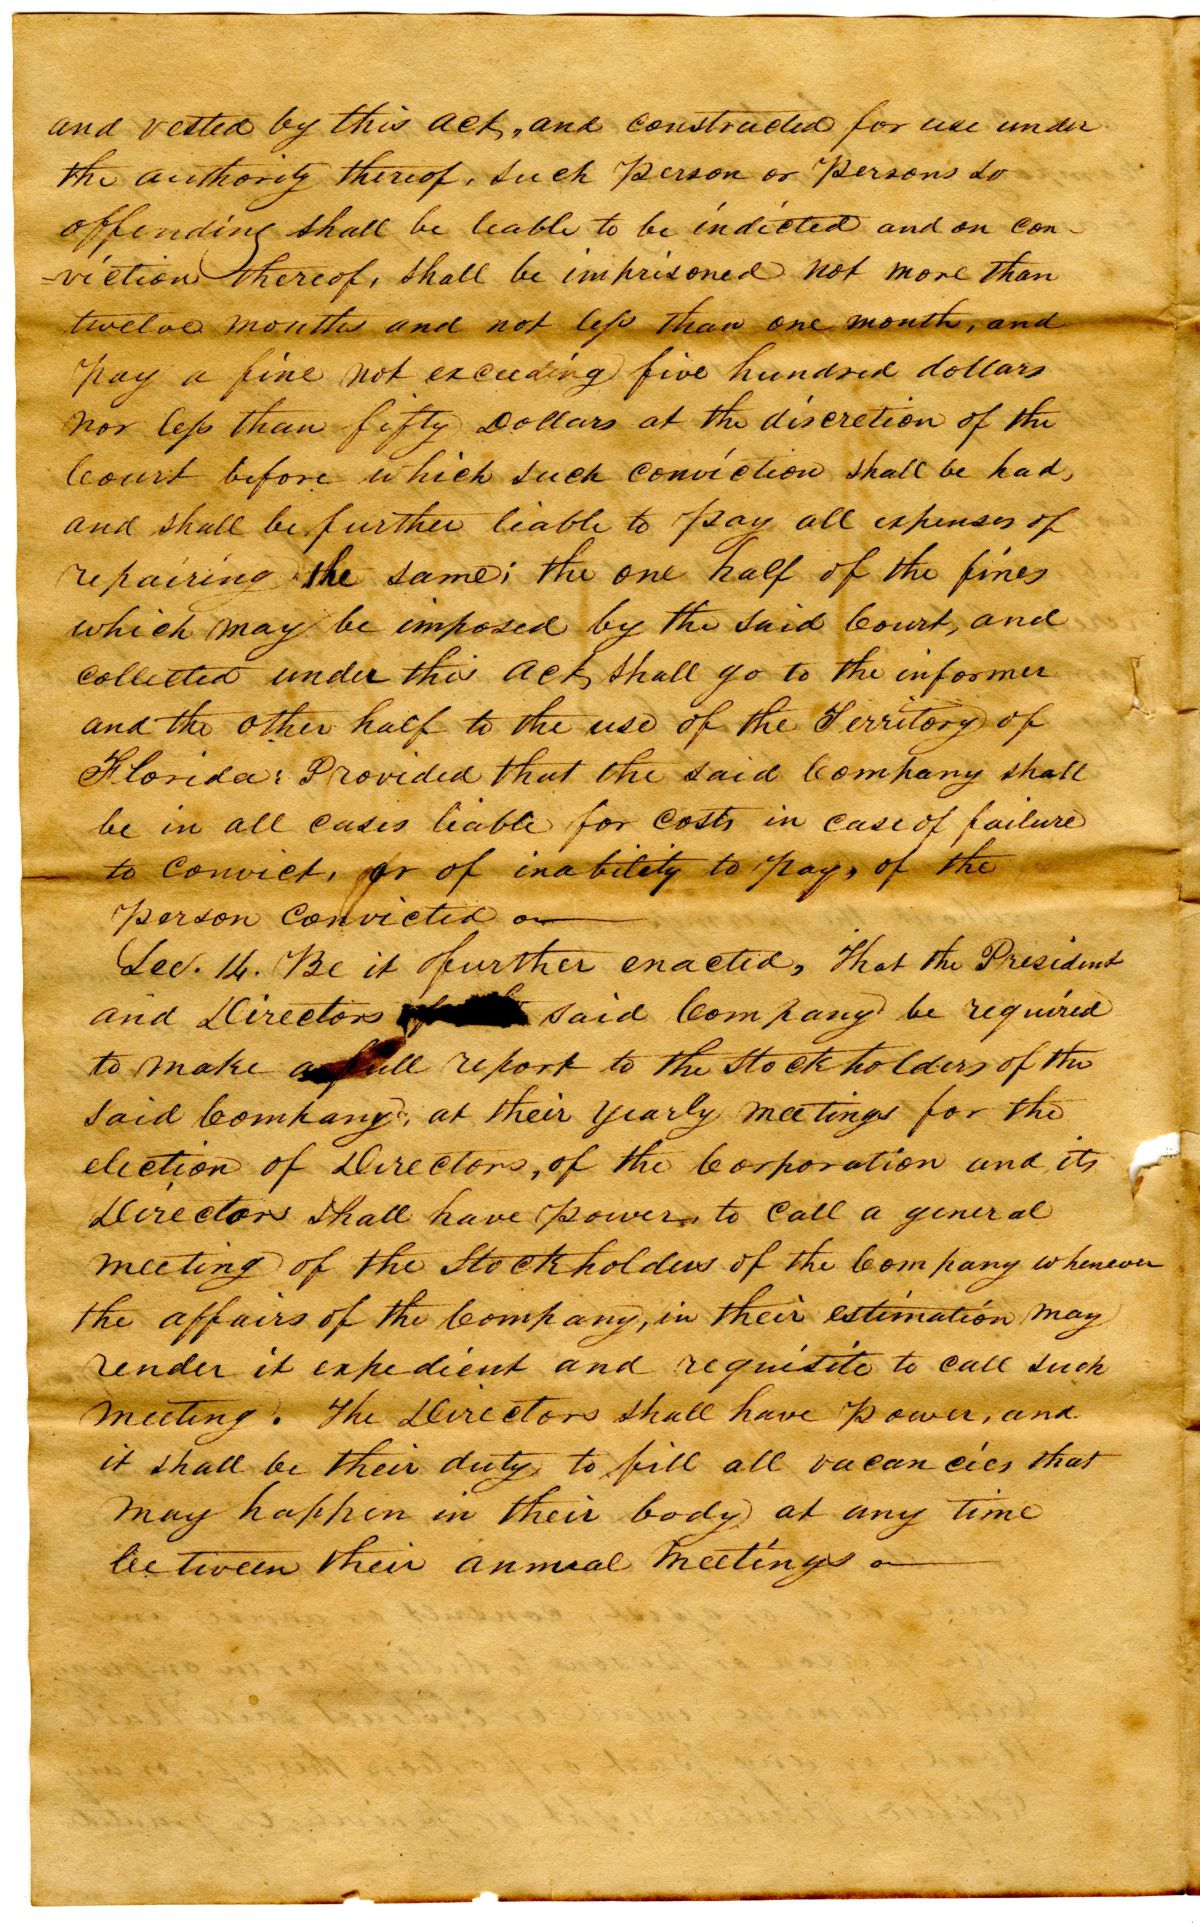 and vested by this act, and constructed for use under
the authority thereof, such Person or Persons so
offending shall be leable to be indicted and on con-
-viction thereof, shall be imprisoned not more than
twelve months and not less than one month, and
pay a fine not exceeding five hundred dollars
nor less than fifty Dollars at the discretion of the
Court before which such conviction shall be had,
and shall be further liable to pay all expenses of
repairing the same; the one half of the fines
which may be imposed by the said Court, and
collected under this act, shall go to the informer
and the other half to the use of the Territory of
Florida: Provided that the said Company shall
be in all cases liable for costs in case of failure
to convict, or of inability to pay, of the
Person convicted
Sec. 14. Be it further enacted, That the President
and Directors said Company be required
to make a full report to the Stockholders of the
said Company, at their yearly meetings for the
election of Directors, of the Corporation and its
Directors shall have power, to call a general
meeting of the Stockholders of the Company whenever
the affairs of the Company, in their estimation may
render it expedient and requisite to call such
meeting. The Directors shall have Power, and
it shall be their duty to fill all vacancies that
may happen in their body at any time
between their annual meetings